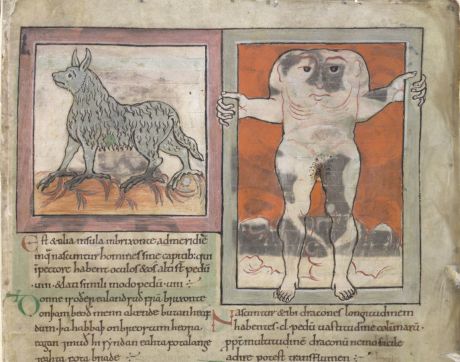 Est & alia insula inbrixonte admeridiē
inq nascuntur homines sine capitib; qui
inpectore habent oculos & os alti st pedū
& lati simili modo pedum
Ðonne is oðer ealand suð frā brixonte
onþam beoð menn akende butan heaf
dum þa habbað onbreostum heora
eagan ⁊ muð hi syndan eahta fota lange
⁊ eahta fota brade
Nascuntur & ibi dracones longitudinem
habentes cl pedum uastitudine columnarū
pp multitudinē draconū nemo facile
adire potest transflumen